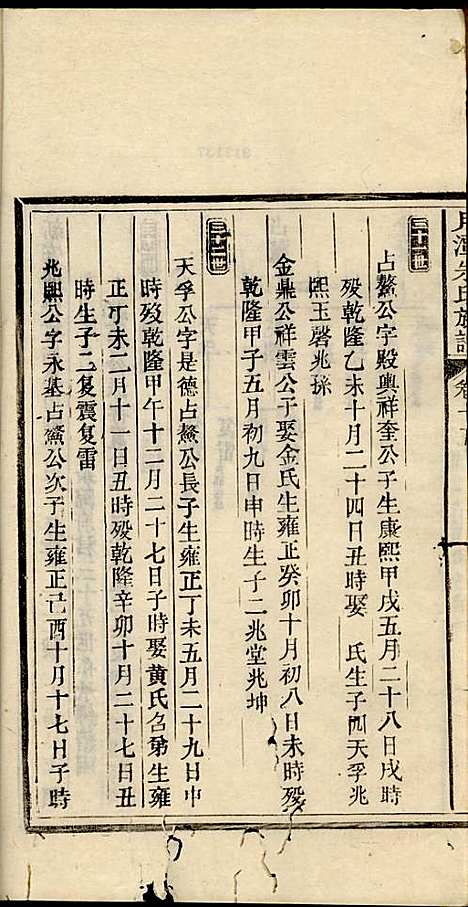 氏族譜 卷十
三十一世
占鰲公字殿輿祥奎公子生康熙甲戌五月二十八日戌時
歿乾隆乙未十月二十四日丑時娶 氏生子四天孚兆
熙玉磬兆孫
金鼎公祥雲公子娶金氏生雍正癸卯十月初八日未時歿
乾隆甲子五月初九日申時生子二兆堂兆坤
三十二世
天孚公字是德占鰲公長子生雍正丁未五月二十九日申
時歿乾隆甲午十二月二十七日子時娶黃氏名第生雍
正丁未二月十一日丑時歿乾隆辛卯十月二十七日丑
時生子二复震复雷
兆熙公字永基占鰲公次子生雍正己酉十月十七日子時